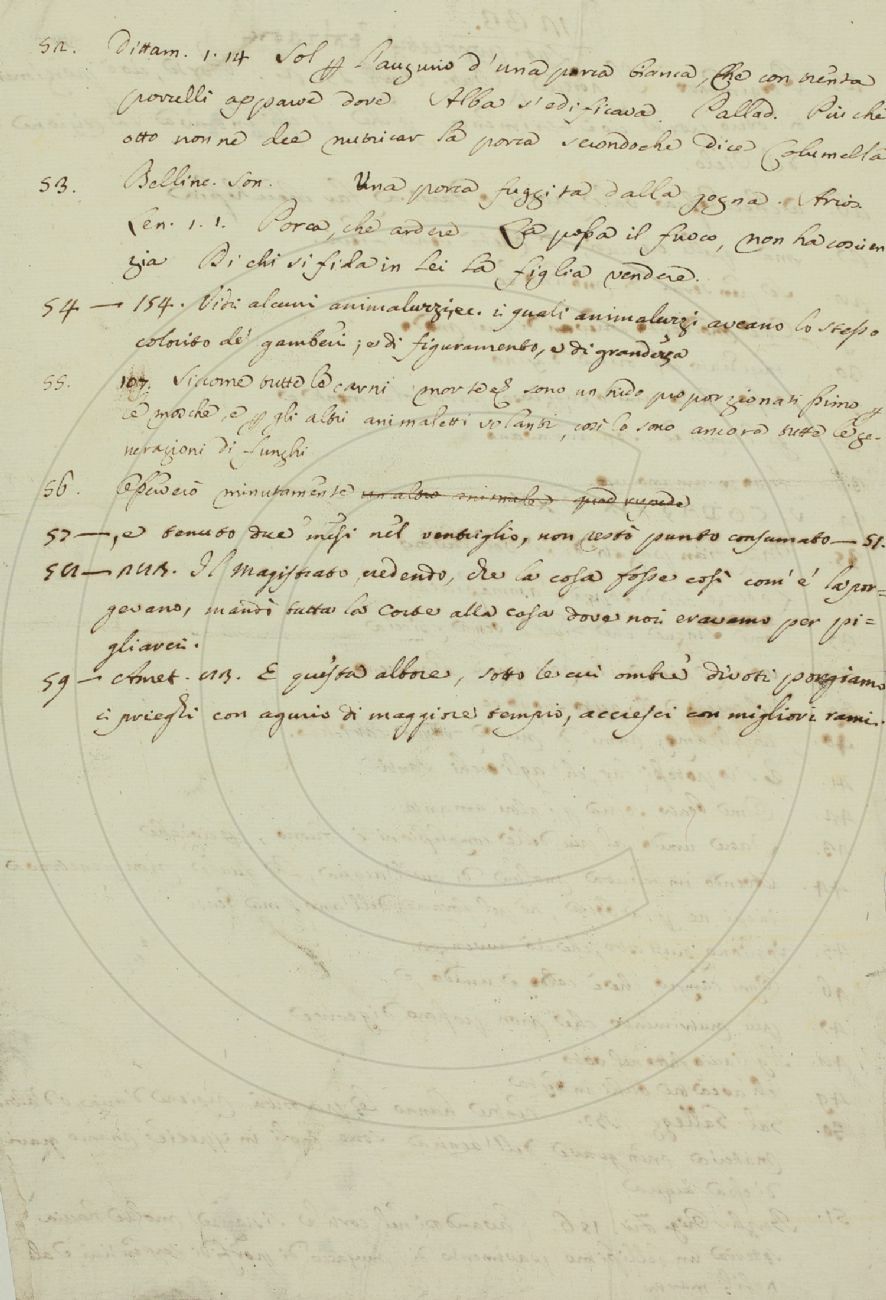 52. Dittam. 1. 14 Sol p l'augurio d'una porca bianca, Che con trenta
porcelli apparve dove Alba s'edificava. Pallad. Piu che
otto non ne dee nutricar la porca secondoche dice Columella
53. Bellinc. Son. Una porca fuggita dalla gogna. Arios.
Len. 1. 1. Porca, che ardere La possa il fuoco, non ha coscien
zia Di chi si fida in lei la figlia vendere.
54 — 154. Vidi alcuni animaluzzi, ec. i quali animaluzzi aveano lo stesso
colorito de' gamberi; e di figuramento, e di grandezza
55. 107. Siccome tutte le carni morte sono un nido proporzionatissimo p
le mosche, e p gli altri animaletti volanti, così lo sono ancora tutte le ge-
nerazioni di funghi
56. minutamente un altro animale quadrupede
57 —, e tenuto due mesi nel ventriglio, non restò punto consumato — 51.
58 — Il Magistrato vedendo, che la cosa fosse così com' e' la por=
gevano, mandò tutta la corte alla casa dove noi eravamo per pi=
gliarci.
59 — Amet. E questa albore, sotto le cui ombre divoti porgiamo
i prieghi con agurio di maggiore tempio, accresci con migliori rami.